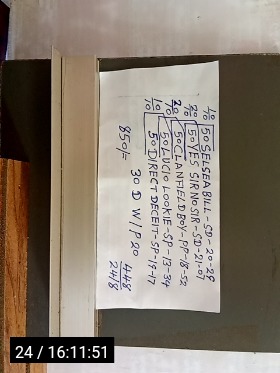 1/10 50 SELSEABILL-SD-20-29
2/10 50 YES SIRNOSIR-SD-21-07
2/10 50 CLANFIELDBOY-PP-18-52
1/10 50 LUCIO LOOKIE-SP-13-34
1/10 50 DIRECT DECEIT-SP-19-17
850/= 30 D W/P20
448
24/8
24 / 16:11:51